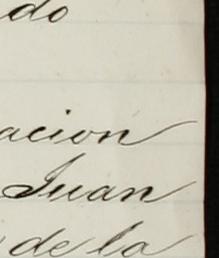 do
acion
Juan
de la